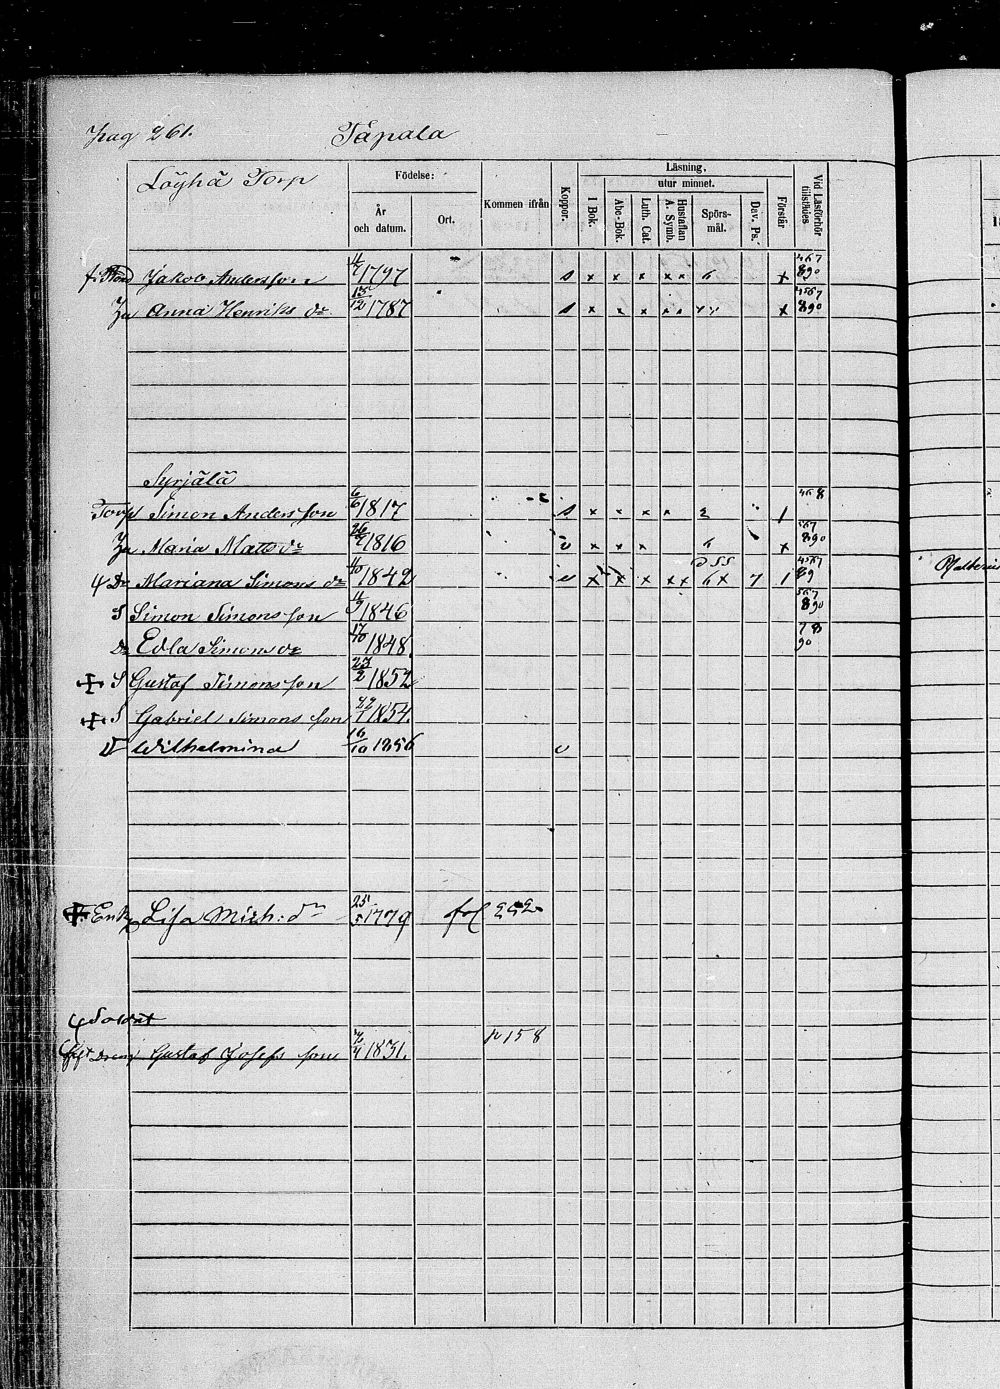 Pag 261. Täpala
Löyhä Torp
Födelse:
År och datum.
Ort.
Kommen ifrån
Koppor.
Läsning,
utur minnet.
I Bok.
Abc-Bok.
Luth. Cat.
Hustaflan A. Symb.
Spörs-mål.
Dav. Ps.
Förstår
Vid Läsförhör tillstädes.
Jakob Andersson 11/7 1797 s x x x x x 6 x 4 5 6 7 8 9 0
Hu Anna Henriks dr 15/12 1787 s x x x x x x 4 5 6 7 8 9 0
Syrjälä
Torp Simon Andersson 6/6 1817 s x x x x 2 1 4 6 8
Hu Maria Matts dr 26/2 1816 v x x x 6 x 5 6 7 8 9 0
Dr Mariana Simons dr 1842 v x x x x x 6 x 7 1 4 5 6 7 8 9
S Simon Simons son 1846 5 6 7 8 9 0
Dr Edla Simons dr 17/10 1848. 7 8 9 0
S Gustaf Simons son 23/2 1852
S Gabriel Simons son 1854.
Wilhelmina 16/10 1856 v
Enk Lisa Mich: dr 25/5 1779 fol 252
Soldat
Dreng Gustaf Josefs son 1831. p 158